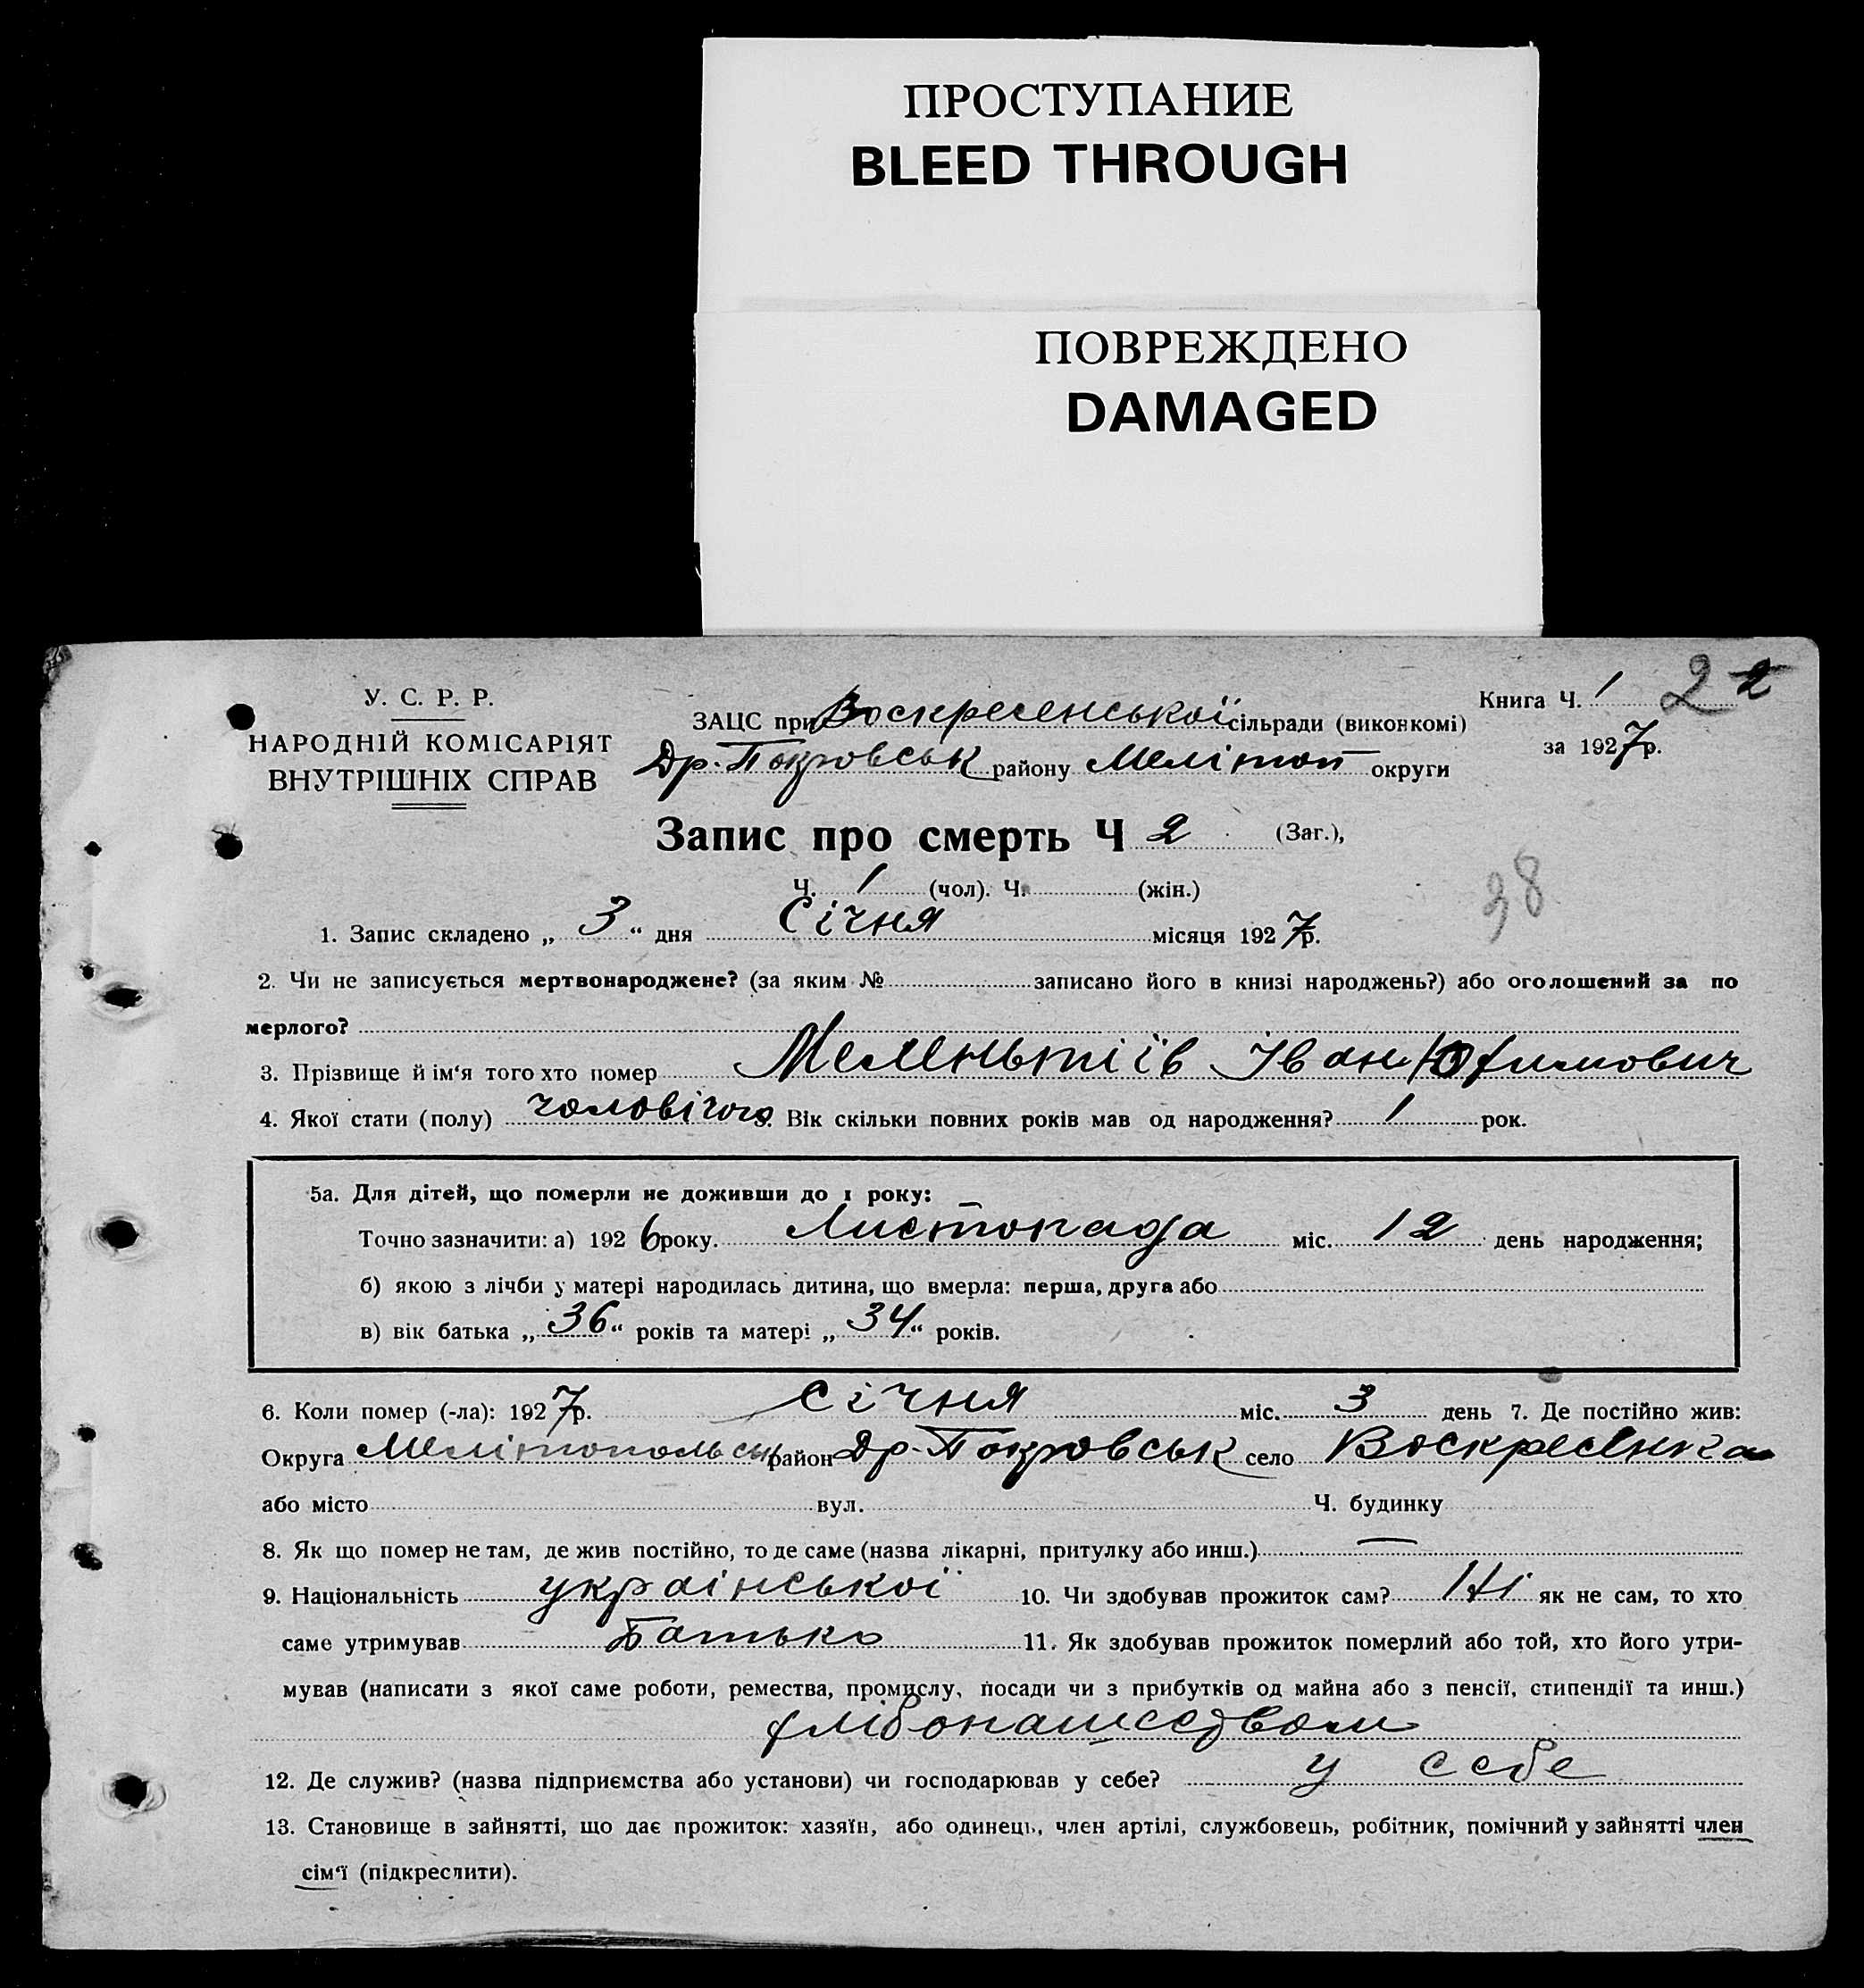 ПРОСТУПАНИЕ
BLEED THROUGH
ПОВРЕЖДЕНО
DAMAGED
У. С. Р. Р.
НАРОДНІЙ КОМІСАРІЯТ
ВНУТРІШНІХ СПРАВ
ЗАЦС при Воскресенської сільради (виконкомі)
Др.-Покровськ району Мелітоп округи
Книга Ч. 1 22
за 1927р.
Запис про смерть Ч 2 (Заг.),
Ч. 1 (чол). Ч. (жін.)
38
1. Запис складено „ 3 “ дня Січня місяця 1927р.
2. Чи не записується мертвонароджене? (за яким № записано його в книзі народжень?) або оголошений за по
мерлого?
3. Прізвище й ім‘я того хто помер Меленьтіїв Іван Юхимович
4. Якої стати (полу) чоловічого 5. Вік скільки повних років мав од народження? 1 рок.
5а. Для дітей, що померли не доживши до 1 року:
Точно зазначити: а) 1926 року. Листопада міс. 12 день народження;
б) якою з лічби у матері народилась дитина, що вмерла: перша, друга або
в) вік батька „ 36 “ років та матері „ 34 “ років.
6. Коли помер (-ла): 1927р. Січня міс. 3 день 7. Де постійно жив:
Округа Мелітопольськ район Др-Покровськ село Воскресенка
або місто вул. Ч. будинку
8. Як що помер не там, де жив постійно, то де саме (назва лікарні, притулку або инш.) —
9. Національність української 10. Чи здобував прожиток сам? Ні як не сам, то хто
саме утримував Батько 11. Як здобував прожиток померлий або той, хто його утри-
мував (написати з якої саме роботи, ремества, промислу, посади чи з прибутків од майна або з пенсії, стипендії та инш.)
хлібопашеством
12. Де служив? (назва підприємства або установи) чи господарював у себе? у себе
13. Становище в зайнятті, що дає прожиток: хазяїн, або одинець, член артілі, службовець, робітник, помічний у зайнятті член
сім‘ї (підкреслити).